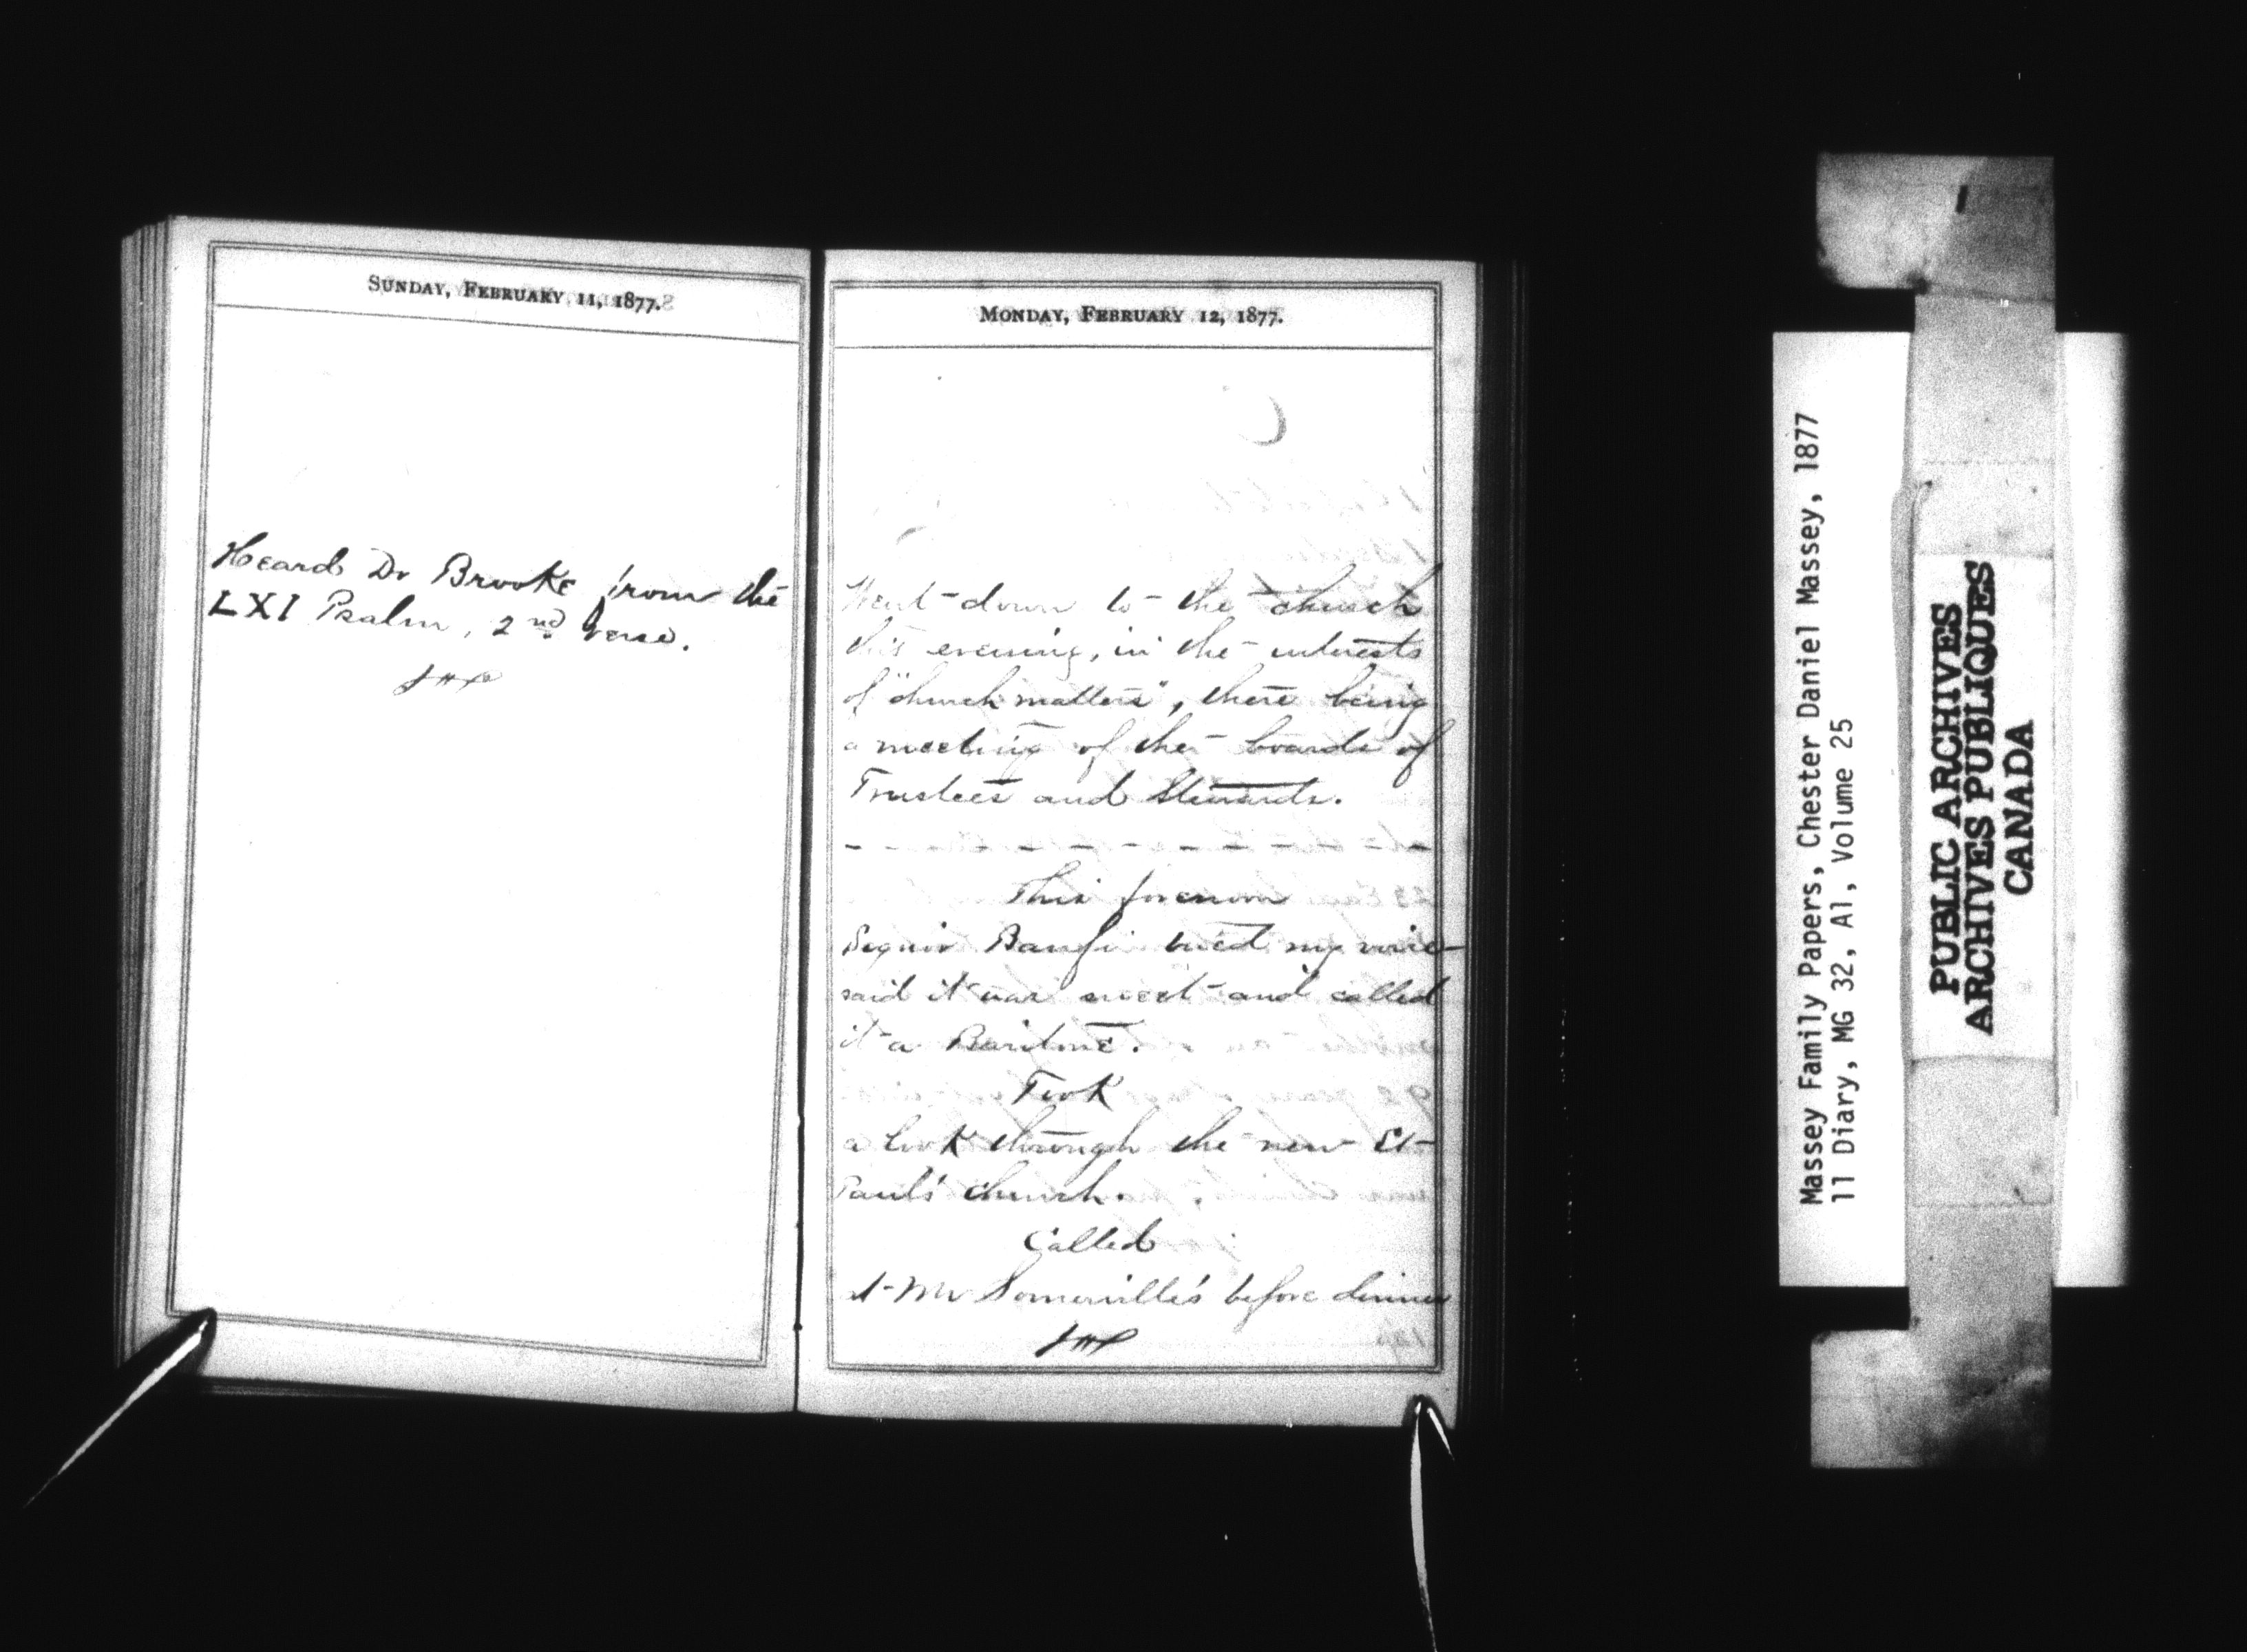 SUNDAY, FEBRUARY 11, 1877.
Heard Dr Brooke from the
LXI Psalm, 2nd verse.
MONDAY, FEBRUARY 12, 1877.
Went down to the church
this evening, in the interests
of "church matters", there being
a meeting of the boards of
Trustees and Stewards.
This forenoon
tried my voice
said it was sweet and called
it a Baritone.
Took
a look through the new St
Paul's church.
Called
at Mr Somerville's before dinner
Massey Family Papers, Chester Daniel Massey, 1877
11 Diary, MG 32, A1, Volume 25
PUBLIC ARCHIVES
ARCHIVES PUBLIQUES
CANADA